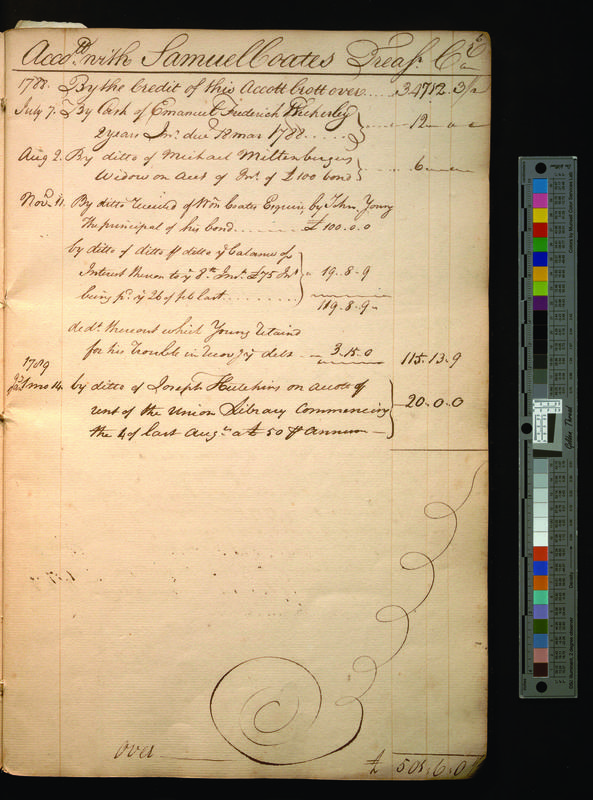 Accott. with Samuel Coates Treasr. Cr.
1788. By the Credit of this Accott brott over .... 347.12.3½
July 7. By Cash of Emanuel Frederich
2 years Int. due 18 mar 1788 ..... 12
Aug 2. By ditto of Michael Miltenbergers
Widow on acct of Int. of £100 bond ... 6
Novr. 11. By ditto Received of Wm Coates Esquire, by John Young
The principal of his bond .......... £100.0.0
by ditto of ditto ⅌ ditto ye balance of
Interest thereon to ye 8th Int. £75 Int
being pd. ye 26 of feb last .......... 19..8.9
119.8.9
dedt. thereout which Young retaind
for his trouble in recovg ye debt .. 3.15.0 115.13.9
1789
1 mo 14. by ditto of Joseph Hutchins on accott of
rent of the Union Library Commencing
the 4 of last Augt. at £50 ⅌ annum 20..0.0
over £ 501.6.0
Golden Thread